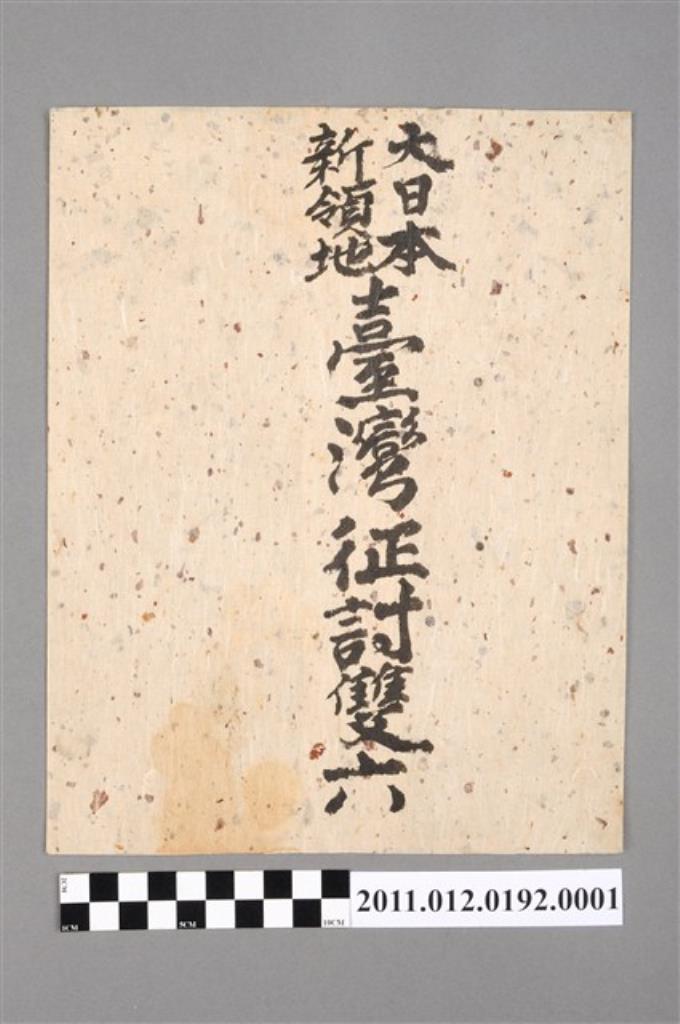 大日本
新領地
臺灣征討雙六
2011.012.0192.0001
1CM
5CM
10CM
8CM